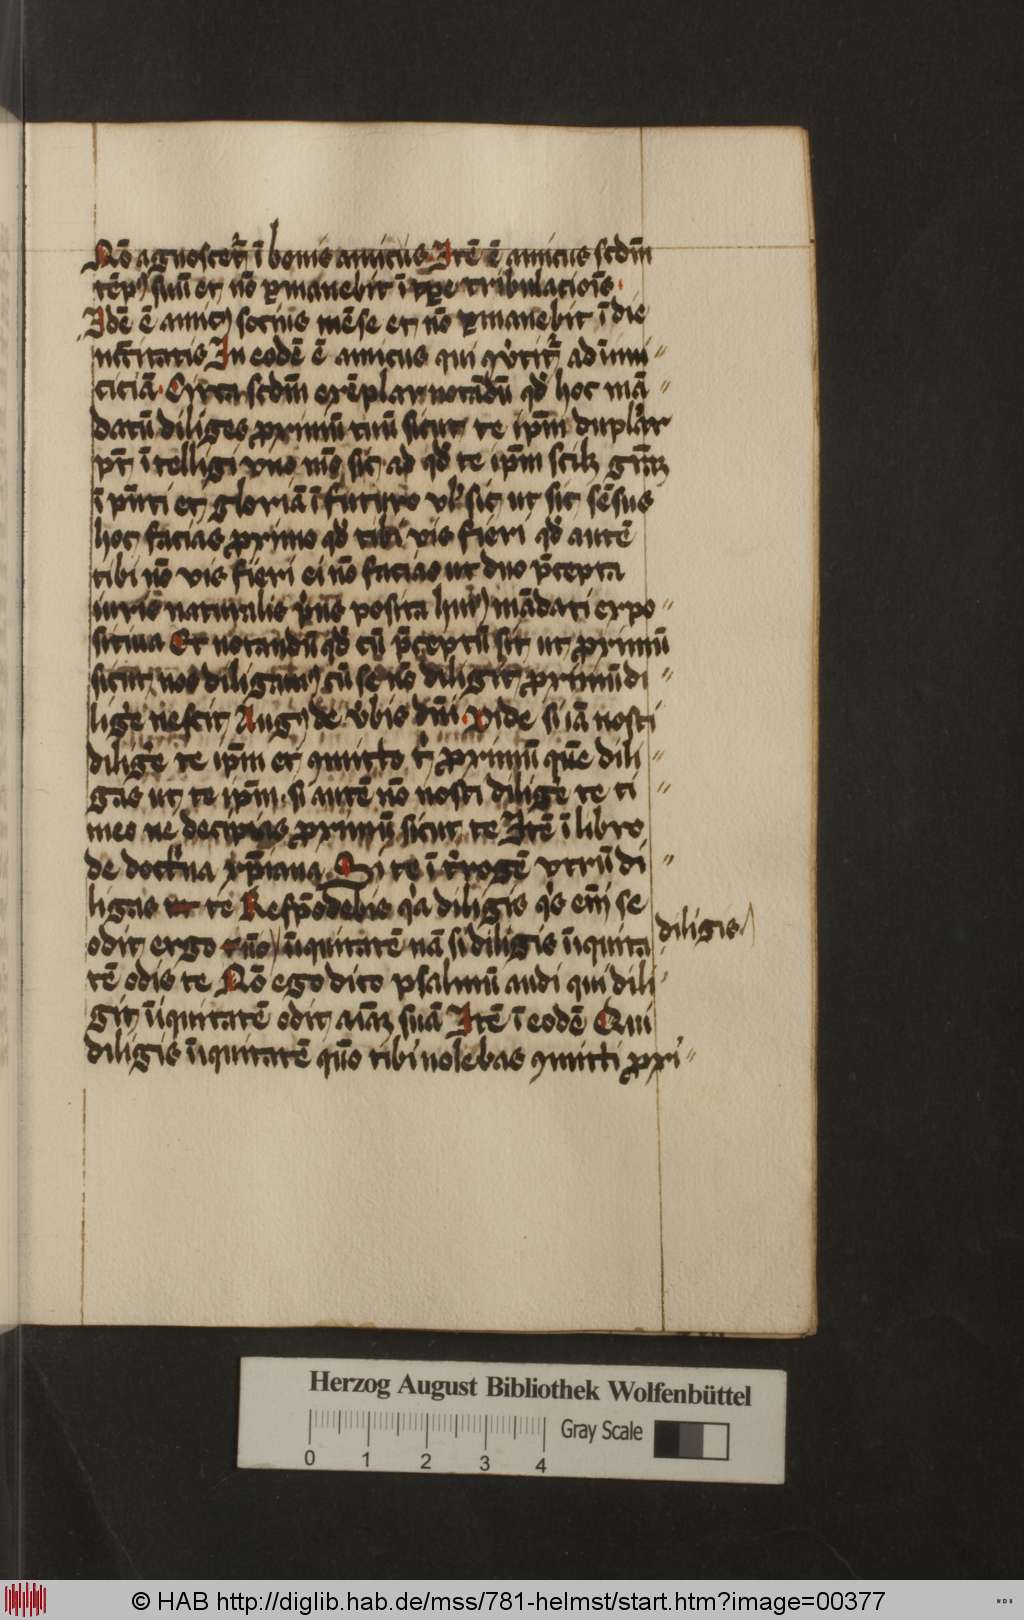 Nō agnoscet᷑ ī bonis amicus Itē ē amicus scd̄m
tēpꝰ suū et nō ꝑmanebit ī tꝑe tribulacioīs
Idē ē amicꝰ socius mēse et nō ꝑmanebit ī die
nc̄c̄itatis In eodē ē amicus qui ꝯv̓tit᷑ ad īimi〃
ciciā Circa scd̄m exēplar notādū qd̓ hoc mā〃
datū diliges proximū tuū sicut te ip̄m dupl̓r
pt̄ ītelligi vno mō sic ad qd̓ te ip̄m scilꝫ gr̄aꝫ
ī pn̄ti et gloriā ī futuro vl̓ sic ut sit sēsus
hoc facias proximo qd̓ tibi vis fieri qd̓ autē
tibi nō vis fieri ei nō facias ut duo p̄cepta
iuris naturalis posita huiꝰ mādati expo〃
sitiua Et notandū qd̓ cū p̄ceptū sit ut proximū
sicut nos diligamꝰ cū se nō diligit proximū di〃
lige̓ nescit Augꝰ de v̓bis dn̄i Vide si iā nosti
dilige̓ te ip̄m et ꝯmitto t̓ proximū quē dili〃
gas ut te ip̄m si autē nō nosti dilige̓ te ti〃
meo ne decipias proximū sicut te Itē ī libro
de doct̓na xp̄iana Si te īt̓rogē vtrū di〃
ligas te Respōdebis qa̓ diligis qi̓s eīm se
odit ergo īiquitatē nā si diligis īiquita
diligis
tē odis te Nō ego dico psalmū audi qui dili〃
git īiquitatē odit aīaꝫ suā Itē ī eodē Qui
diligis īiquitatē quō tibi uolebas ꝯmitti proxi〃
Herzog August Bibliothek Wolfenbüttel
0 1 2 3 4
Gray Scale
© HAB http://diglib.hab.de/mss/781-helmst/start.htm?image=00377